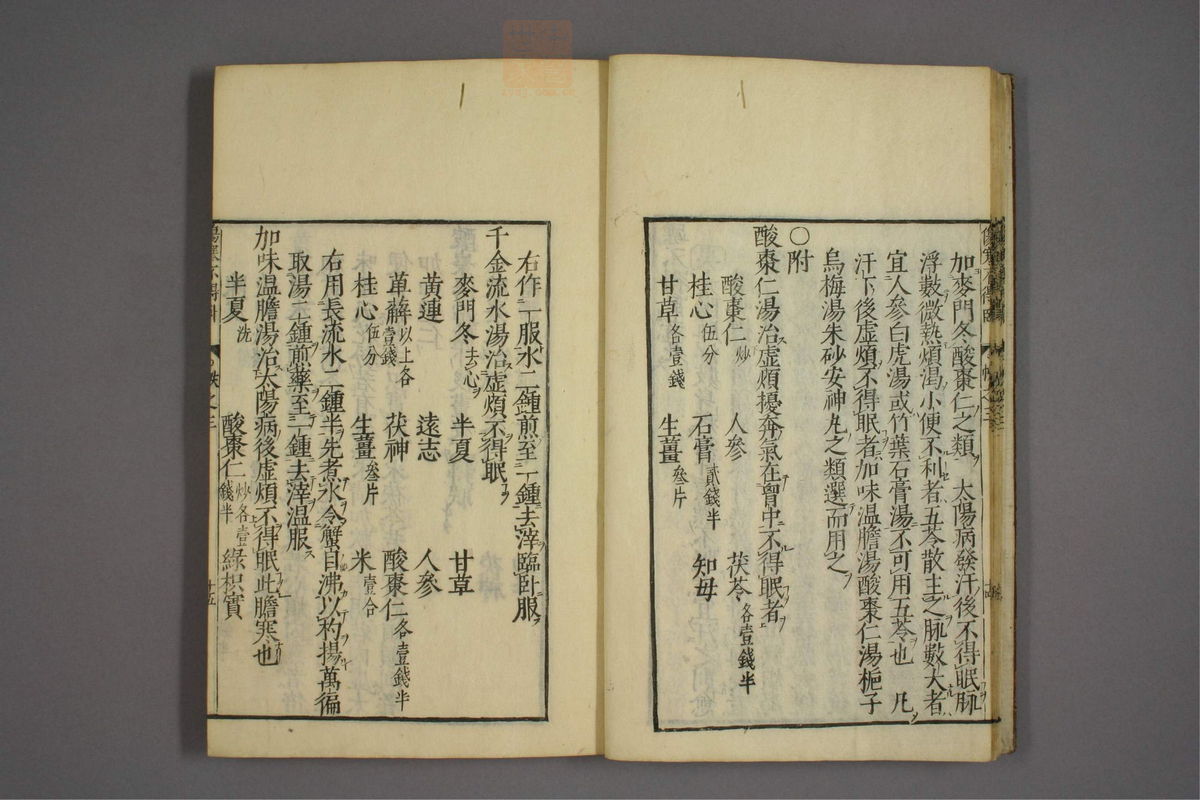 加麥門冬酸棗仁之類 太陽病發汗後不得眠脉
浮數微熱煩渴小便不利者五苓散主之脉數大者
宜人參白虎湯或竹葉石膏湯不可用五苓也 凡
汗下後虛煩不得眠者加味温膽湯酸棗仁湯梔子
烏梅湯朱砂安神丸之類選而用之
○附
酸棗仁湯治虛煩擾奔氣在胷中不得眠者
酸棗仁炒 人參 茯苓各壹錢半
桂心伍分 石膏貳錢半 知毋
甘草各壹錢 生薑叄片
右作一服水二鍾煎至一鍾去滓臨卧服
千金流水湯治虛煩不得眠
麥門冬去心 半夏 甘草
黃連 遠志 人參
萆薢以上各壹錢 茯神 酸棗仁各壹錢半
桂心伍分 生薑叄片 米壹合
右用長流水二鍾半先煮水令蟹目沸以杓揚萬徧
取湯二鍾煎藥至一鍾去滓温服
加味温膽湯治太陽病後虛煩不得眠此膽寒也
半夏洗 酸棗仁炒各壹錢半 綠枳實
十五